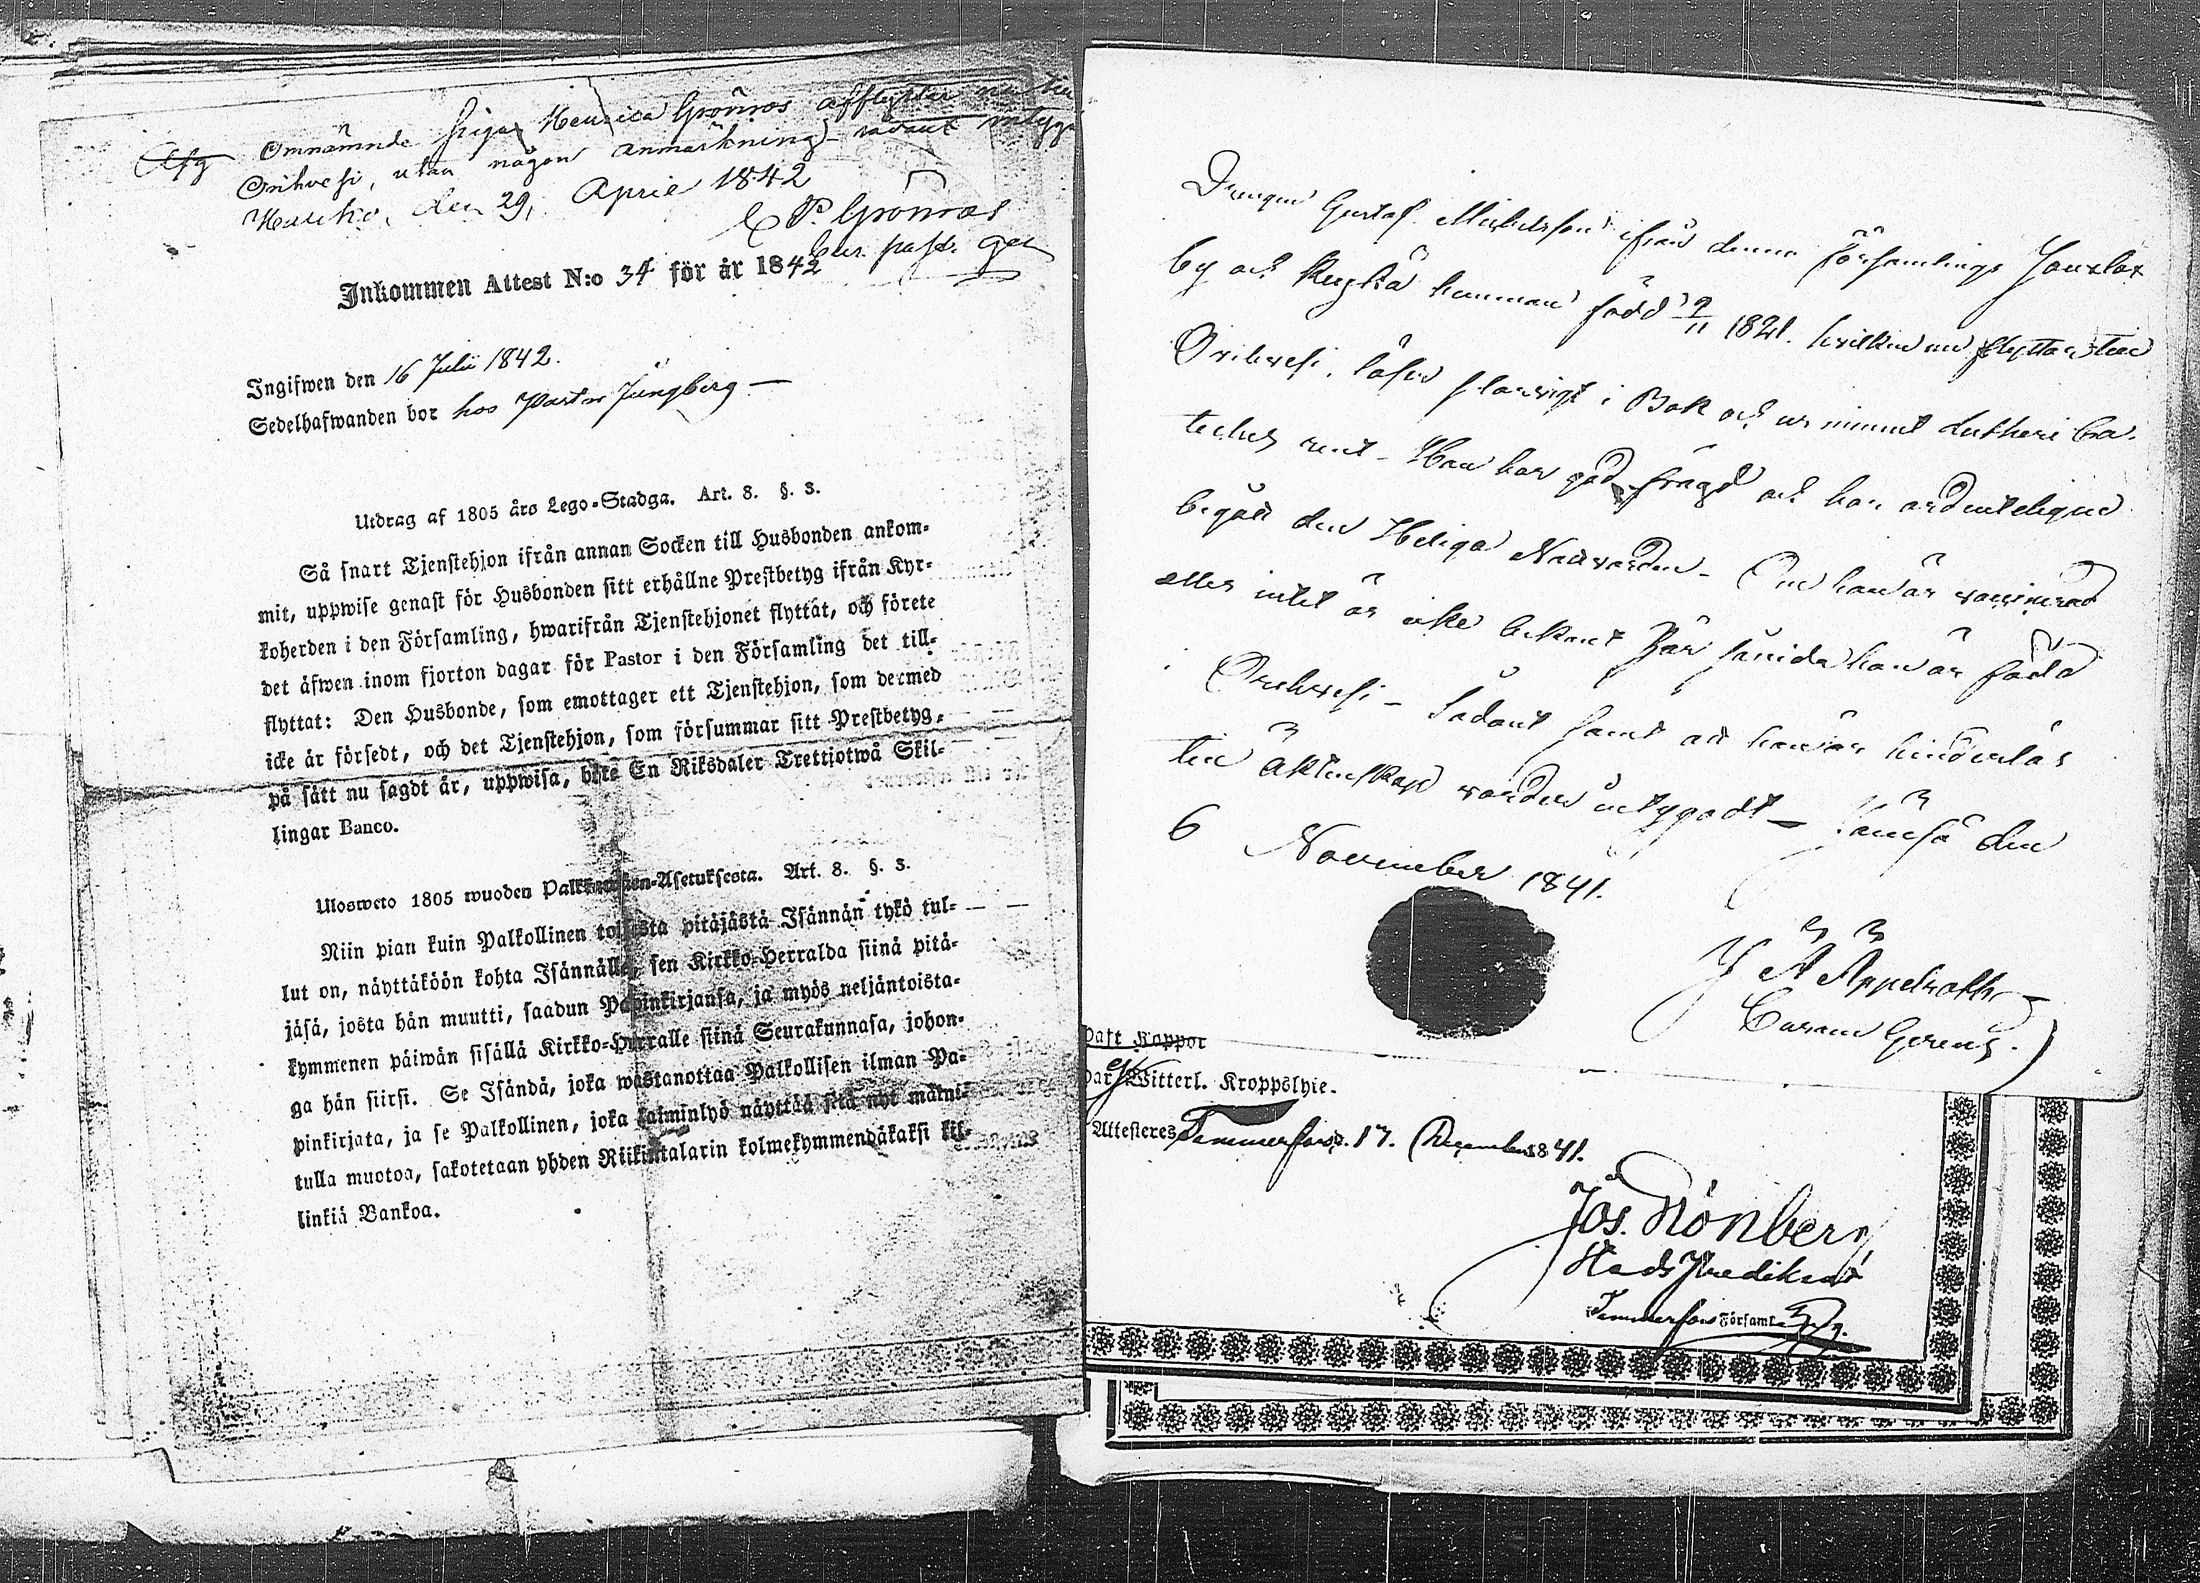 Omnämnde piga Henrica Grönroos afflyttar nu till
Orihvesi, utan någon anmärkning sådant intygar
Hauho, den 29, April 1842
C P Grönroos
Inkommen Attest N:o 34 för år 1842
Ingifwen den 16 Julii 1842.
Sedelhafwanden bor hos Pastor Ljungberg —
Utdrag af 1805 års Lego-Stadga. Art. 8. §. 3.
Så snart Tjenstehjon ifrån annan Socken till Husbonden ankom-
mit, uppwise genast för Husbonden sitt erhållne Prestbetyg ifrån Kyr-
koherden i den Församling, hwarifrån Tjenstehjonet flyttat, och förete
det äfwen inom fjorton dagar för Pastor i den Församling det till-
flyttat: Den Husbonde, som emottager ett Tjenstehjon, som dermed
icke är försedt, och det Tjenstehjon, som försummar sitt Prestbetyg,
på sätt nu sagdt är, uppwisa, böte En Riksdaler Trettjotwå Skil-
lingar Banco.
Ulosweto 1805 wuoden Palkkaus-Asetuksesta. Art. 8. §. 3.
Niin pian kuin Palkollinen toisesta pitäjästä Isännän tykö tul-
lut on, näyttäköön kohta Isännälle, sen Kirkko-Herralda siinä pitä-
jäsä, josta hän muutti, saadun Papinkirjansa, ja myös neljäntoista-
kymmenen päiwän sisällä Kirkko-Herralle siinä Seurakunnasa, johon-
ga hän siirsi. Se Isändä, joka wastanottaa Palkollisen ilman Pa-
pinkirjata, ja se Palkollinen, joka laiminlyö näyttää sitä nyt maini-
tulla muotoa, sakotetaan yhden Riikintalarin kolmekymmendäkaksi kil-
linkiä Bankoa.
Drengen Gustaf Michelsson ifrån denna församlings
by och hemman född 9/11 1821. hvilken nu flyttar till
Orihvesi, läser försvarligt i Bok och ur minnet Lutheri Ca-
teches rent - Han har god frägd och har ordenteligen
begått den Heliga Nattvarden - Om han är vaccinerad
eller intet är icke bekant här emedan han är född
i Orihvesi - Sådant samt att han är hinderlös
till äktenskap varder intygadt - Jämsä den
6 November 1841.
J A Äppelroth
haft Koppor
har ej Witterl. Kroppslyte.
Attesteres Tammerfors d. 17. December 1841.
Jos. Grönberg
Stads Predikant
Tammerfors Församl.